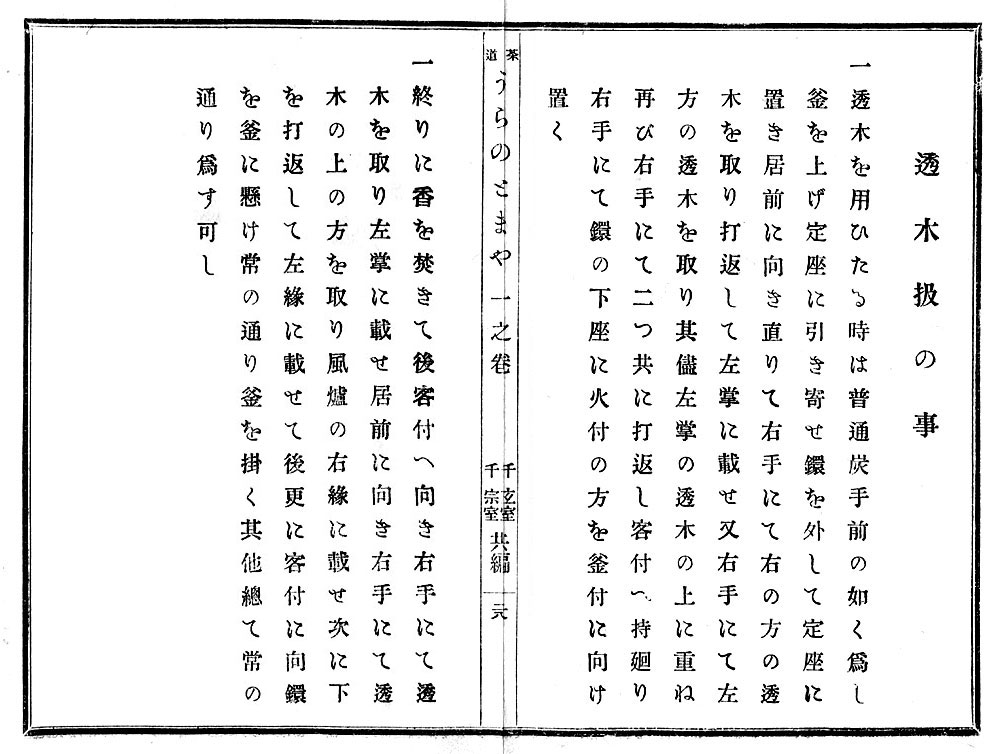 透木扱の事
一透木を用ひたる時は普通炭手前の如く爲し
釜を上げ定座に引き寄せ鐶を外して定座に
置き居前に向き直りて右手にて右の方の透
木を取り打返して左掌に載せ又右手にて左
方の透木を取り其儘左掌の透木の上に重ね
再び右手にて二つ共に打返し客付へ持廻り
右手にて鐶の下座に火付の方を釜付に向け
置く
茶道
うらのとまや一之卷
千玄室
千宗室
共編
一終りに香を焚きて後客付へ向き右手にて透
木を取り左掌に載せ居前に向き右手にて透
木の上の方を取り風爐の右緣に載せ次に下
を打返して左緣に載せて後更に客付に向鐶
を釜に懸け常の通り釜を掛く其他總て常の
通り爲す可し